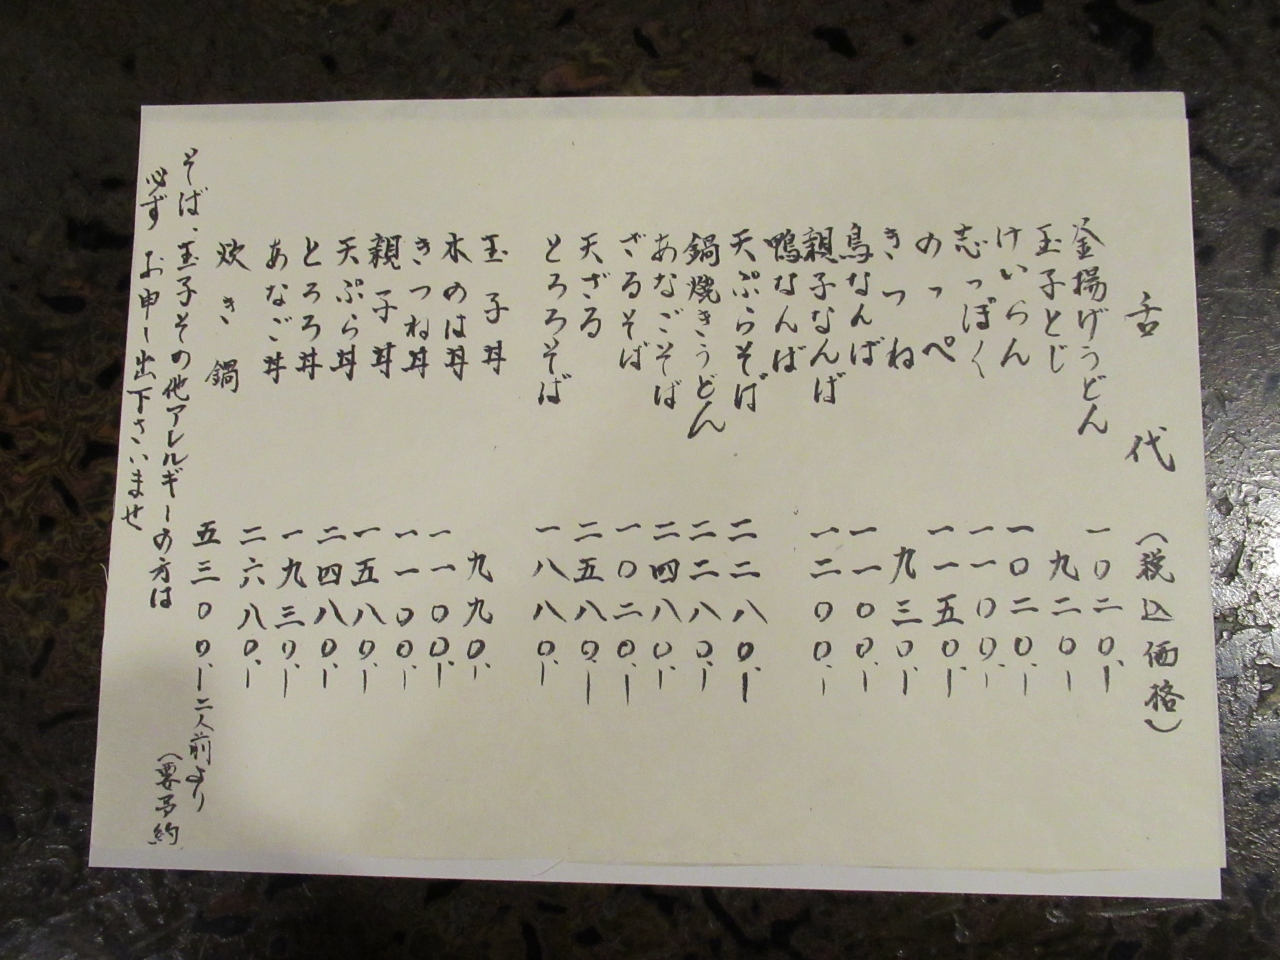 舌代 (税込価格)
釜揚げうどん 一〇二〇、ー
玉子とじ 九二〇、ー
けいらん 一〇二〇、ー
志っぽく 一一〇〇、ー
のっぺ 一一五〇、ー
きつね 九三〇、ー
鳥なんば 一一〇〇、ー
親子なんば 一二〇〇、ー
鴨なんば
天ぷらそば 二二八〇、ー
鍋焼きうどん 二二八〇、ー
あなごそば 二四八〇、ー
ざるそば 一〇二〇、ー
天ざる 二五八〇、ー
とろろそば 一八八〇、ー
玉子丼 九九〇、ー
木のは丼 一一〇〇、ー
きつね丼 一一〇〇、ー
親子丼 一五八〇、ー
天ぷら丼 二四八〇、ー
とろろ丼 一九三〇、ー
あなご丼 二六八〇、ー
炊き鍋 五三〇〇、ー二人前より
(要予約)
そば、玉子その他アレルギーの方は
必ずお申し出下さいませ